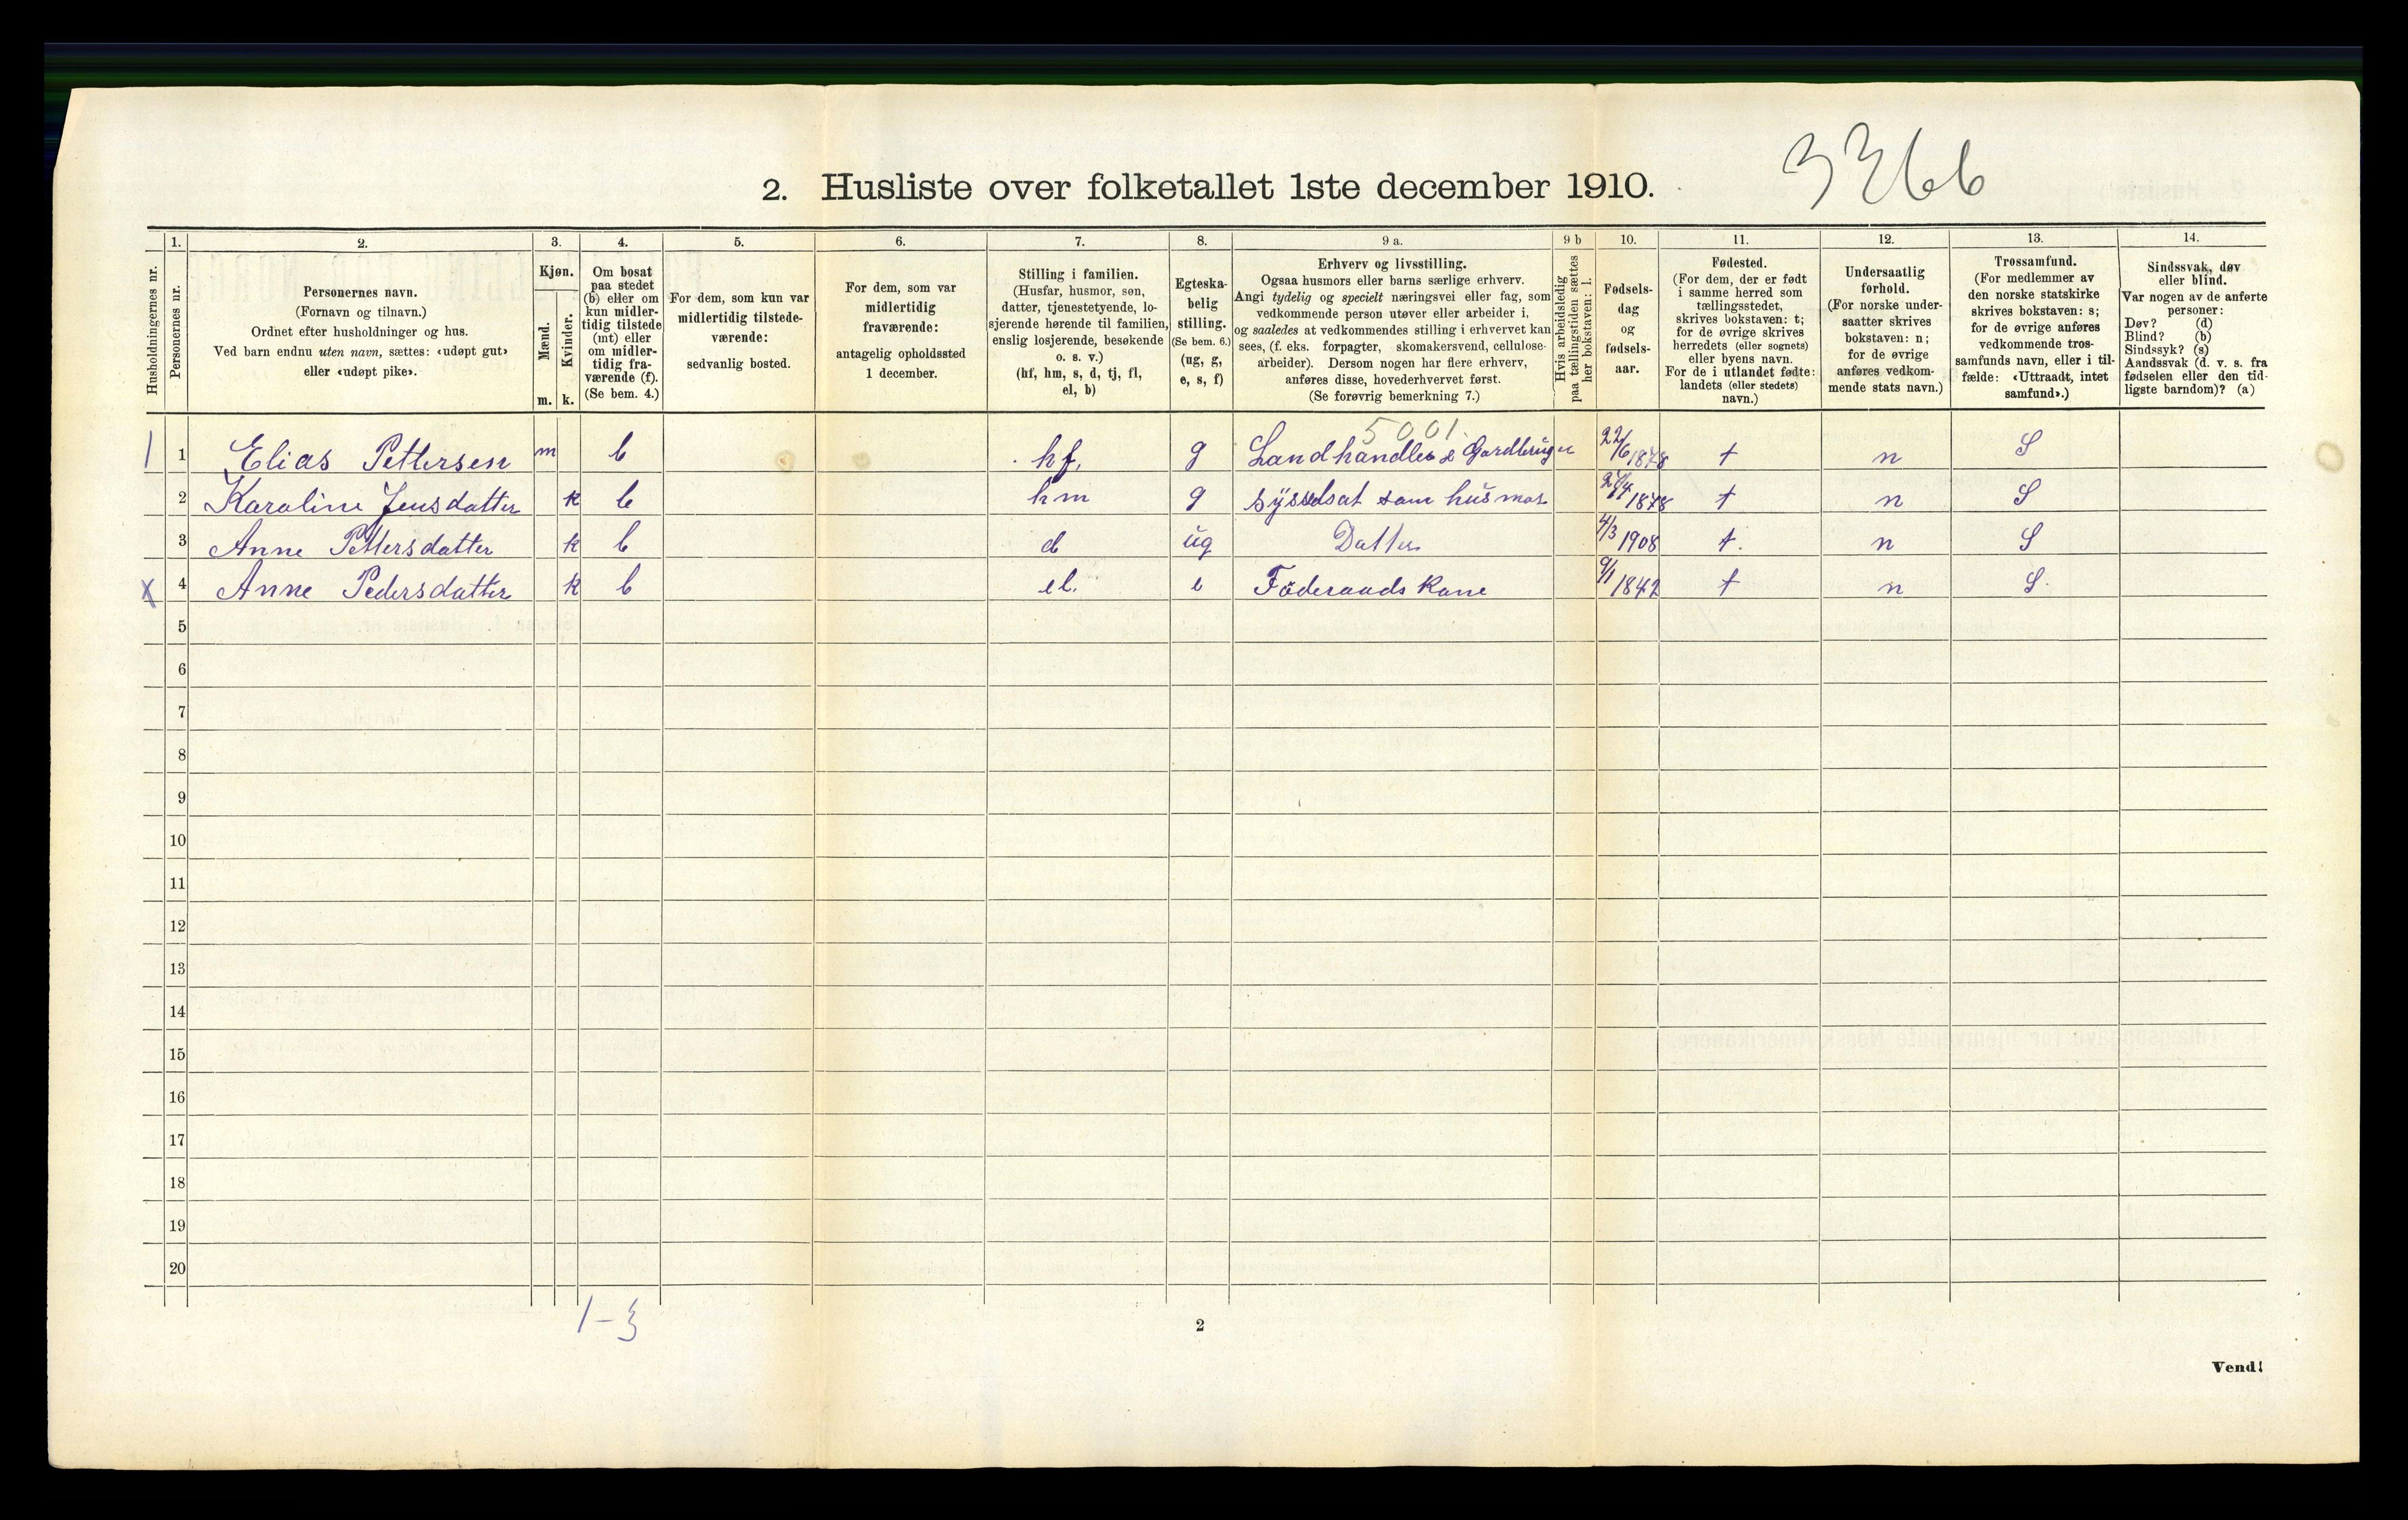 3366
2. Husliste over folketallet 1ste december 1910.
Husholdningernes nr.
1.
Personernes nr.
2.
Personernes navn.
(Fornavn og tilnavn.)
Ordnet efter husholdninger og hus.
Ved barn endnu uten navn, sættes: «udøpt gut»
eller «udøpt pike».
3.
Kjøn.
Mænd.
Kvinder.
m. k.
4.
Om bosat
paa stedet
(b) eller om
kun midler-
tidig tilstede
(mt) eller
om midler-
tidig fra-
værende (f).
(Se bem. 4.)
5.
For dem, som kun var
midlertidig tilstede-
værende:
sedvanlig bosted.
6.
For dem, som var
midlertidig
fraværende:
antagelig opholdssted
1 december.
7.
Stilling i familien.
(Husfar, husmor, søn,
datter, tjenestetyende, lo-
sjerende hørende til familien,
enslig losjerende, besøkende
o. s. v.)
(hf, hm, s, d, tj, fl,
el, b)
8.
Egteska-
belig
stilling.
(Se bem. 6.)
(ug, g,
e, s, f)
9 a.
Erhverv og livsstilling.
Ogsaa husmors eller barns særlige erhverv.
Angi tydelig og specielt næringsvei eller fag, som
vedkommende person utøver eller arbeider i,
og saaledes at vedkommendes stilling i erhvervet kan
sees, (f. eks. forpagter, skomakersvend, cellulose-
arbeider). Dersom nogen har flere erhverv,
anføres disse, hovederhvervet først.
(Se forøvrig bemerkning 7.)
9 b
Hvis arbeidsledig
paa tællingstiden sættes
her bokstaven: l.
10.
Fødsels-
dag
og
fødsels-
aar.
11.
Fødested.
(For dem, der er født
i samme herred som
tællingsstedet,
skrives bokstaven: t;
for de øvrige skrives
herredets (eller sognets)
eller byens navn.
For de i utlandet fødte:
landets (eller stedets)
navn.)
12.
Undersaatlig
forhold.
(For norske under-
saatter skrives
bokstaven: n;
for de øvrige
anføres vedkom-
mende stats navn.)
13.
Trossamfund.
(For medlemmer av
den norske statskirke
skrives bokstaven: s;
for de øvrige anføres
vedkommende tros-
samfunds navn, eller i til-
fælde: «Uttraadt, intet
samfund».)
14.
Sindssvak, døv
eller blind.
Var nogen av de anførte
personer:
Døv? (d)
Blind? (b)
Sindssyk? (s)
Aandssvak (d. v. s. fra
fødselen eller den tid-
ligste barndom)? (a)
5001.
1 1 Elias Pettersen m b hf. g Landhandler & Gardbruger 22/6 1878 t n S
2 Karoline Jensdatter k b hm g sysselsat som husmor 1878 t n S
3 Anne Pettersdatter k b d ug Datter 4/3 1908 t. n S
x 4 Anne Pedersdatter k b el. e Föderaads Kone 9/1 1842 t n S.
5
6
7
8
9
10
11
12
13
14
15
16
17
18
19
20
1-3
2
Vend!